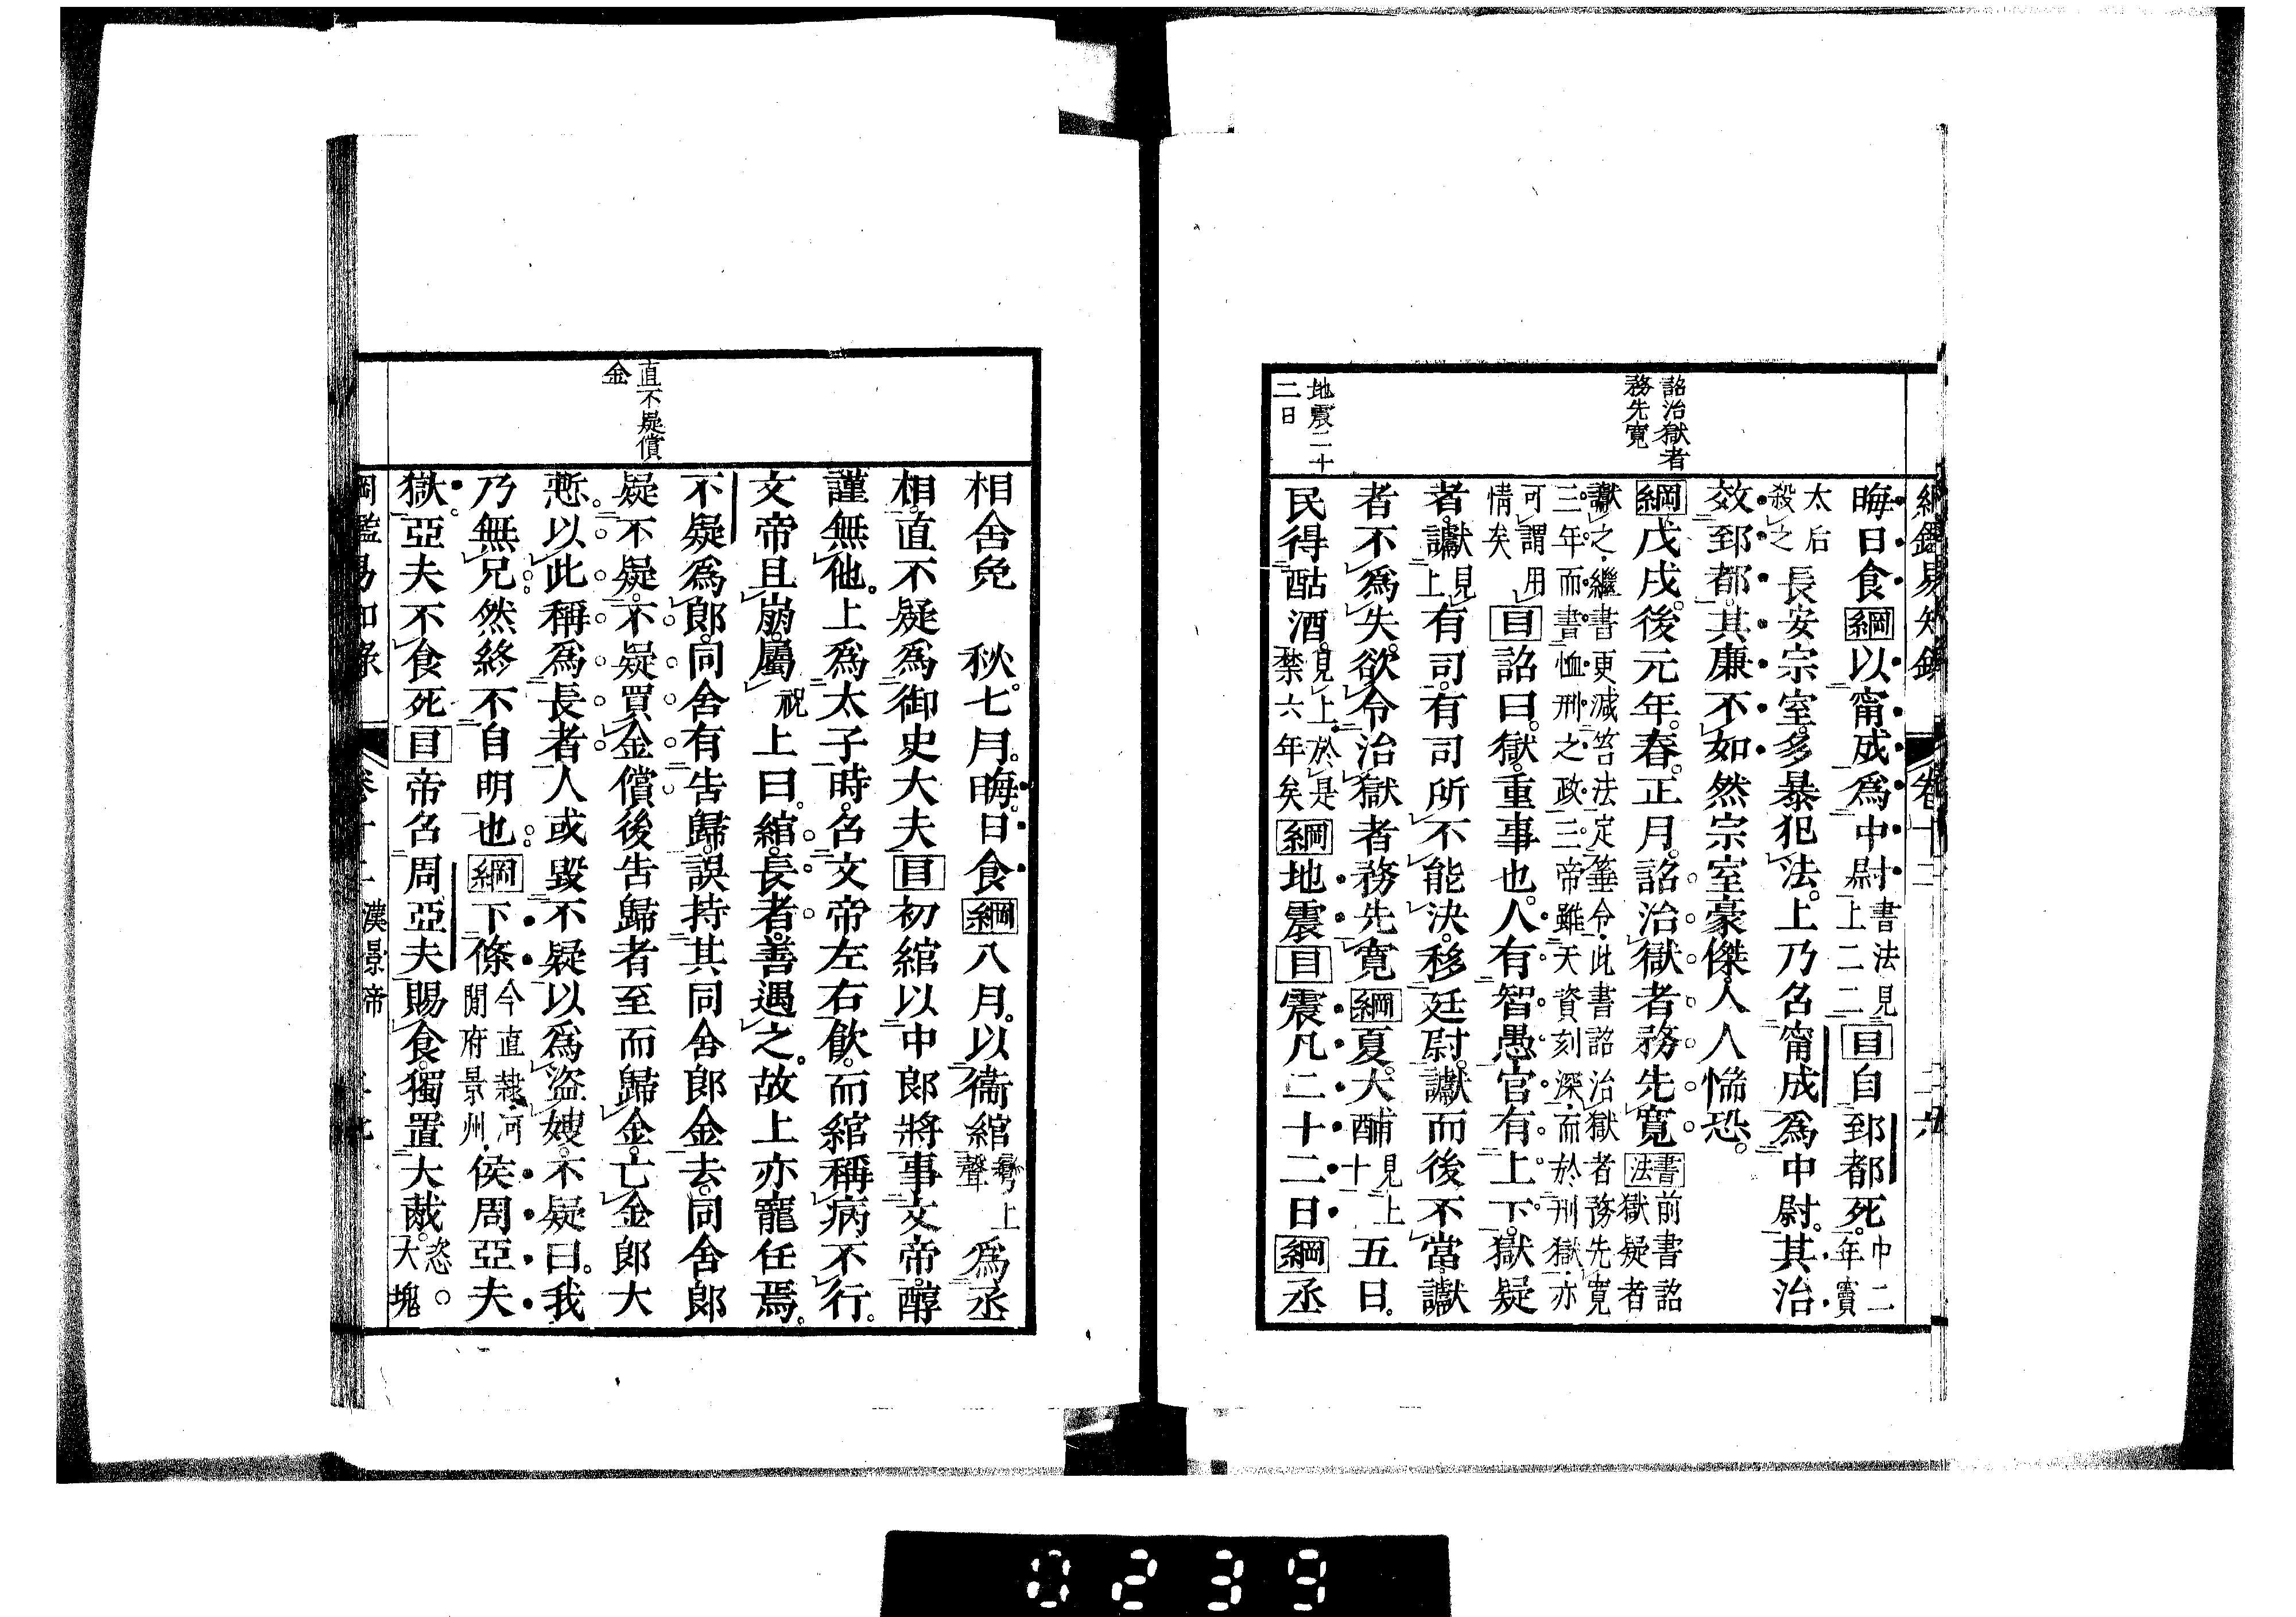 綱鑑易知錄 卷十二
晦日食綱以甯成爲中尉書法見上二二目自郅都死中二年竇
太后殺之長安宗室多暴犯法上乃名甯成爲中尉其治
效郅都其廉不如然宗室豪傑人人惴恐
綱戊戌後元年春正月詔治獄者務先寬書法前書詔獄疑者
讞之繼書更減笞法定箠令此書詔治獄者務先寬
三年而書恤刑之政三帝雖天資刻深而於刑獄亦
可謂用情矣目詔曰獄重事也人有智愚官有上下獄疑
者讞見上有司有司所不能決移廷尉讞而後不當讞
者不爲失欲令治獄者務先寬綱夏大酺見上十一五日
民得酤酒見上於是禁六年矣綱地震目震凡二十二日綱丞
詔治獄者
務先寬
地震二十
二日
相舍免 秋七月晦日食綱八月以衞綰彎上聲爲丞
相直不疑爲御史大夫目初綰以中郎將事文帝醇
謹無他上爲太子時召文帝左右飲而綰稱病不行
文帝且崩屬祝上曰綰長者善遇之故上亦寵任焉
不疑爲郎同舍有告歸誤持其同舍郎金去同舍郎
疑不疑不疑買金償後告歸者至而歸金亡金郎大
慙以此稱爲長者人或毀不疑以爲盜嫂不疑曰我
乃無兄然終不自明也綱下條今直隸河間府景州侯周亞夫
獄亞夫不食死目帝召周亞夫賜食獨置大胾恣大塊
直不疑償
金
綱鑑易知錄 卷十二 漢景帝